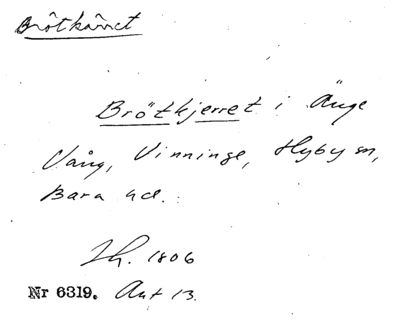 Brötkärret
Brötkjerret i Änge
Vång, Vinninge, Hyby sn,
Bara hd.
Lh. 1806
Nr 6319. Akt 13.